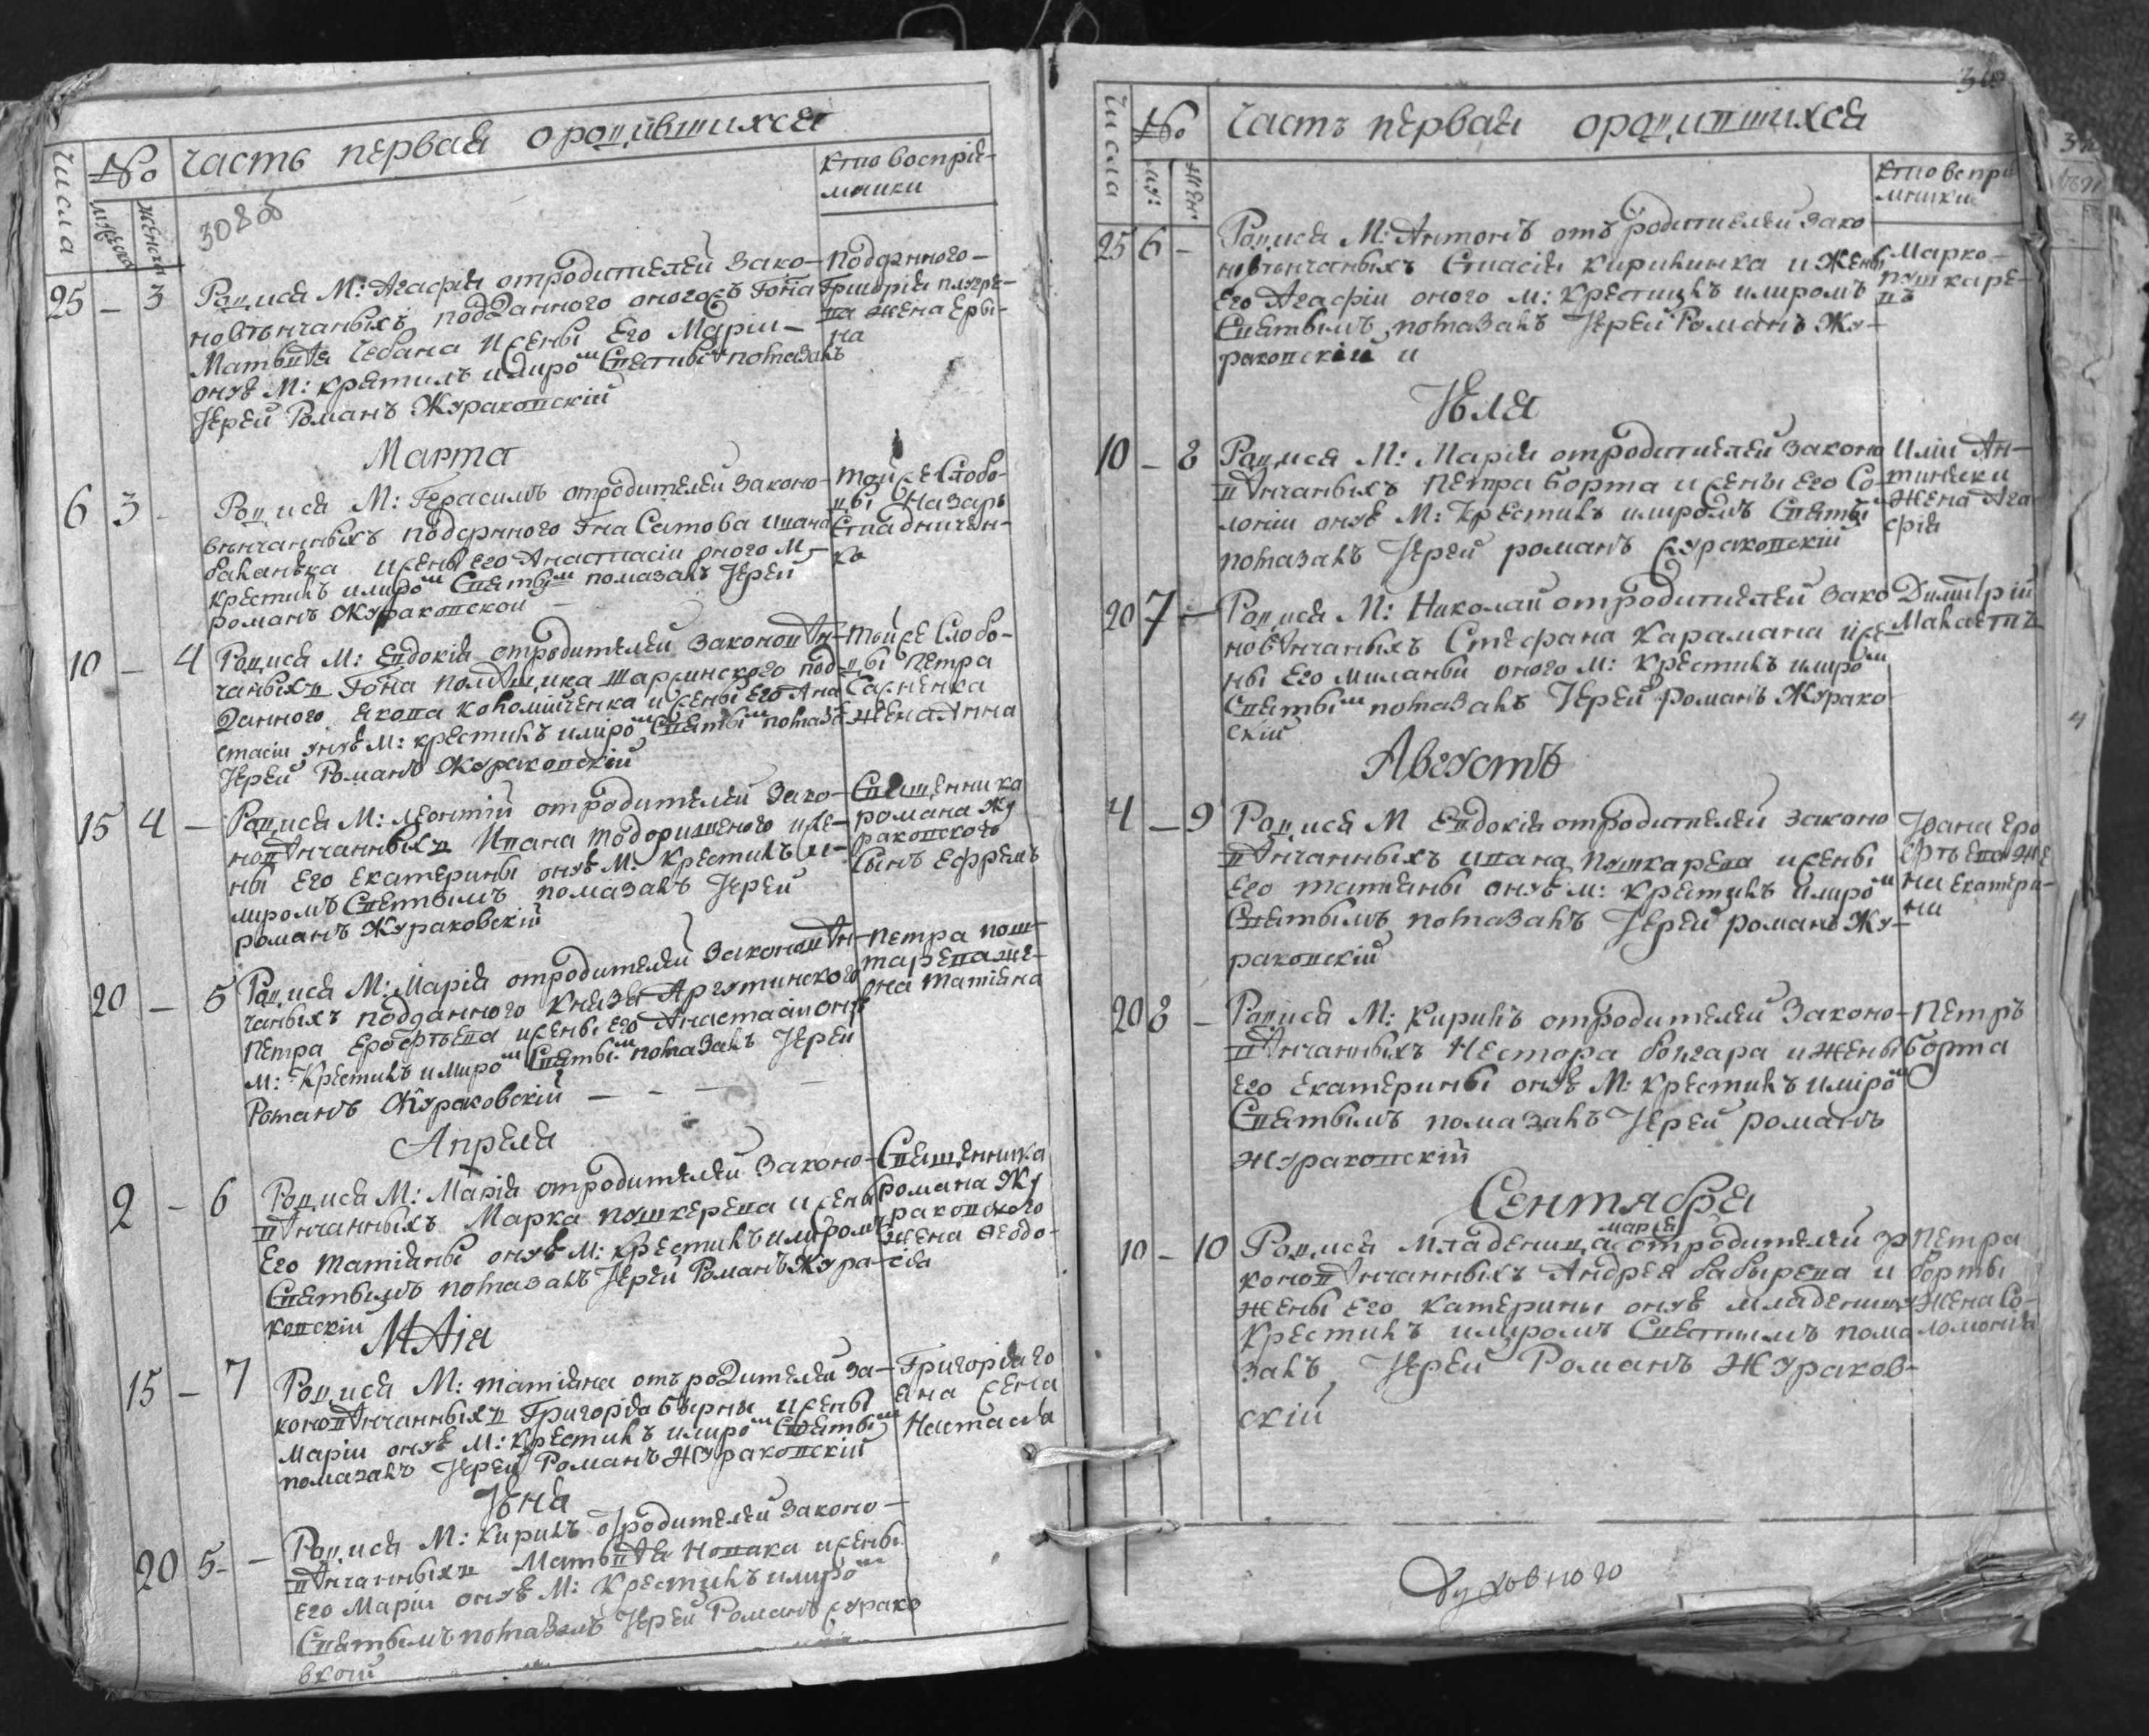 Часть первая ородившихся
Числа
№
мужеска
женска
30 8 об
кто восприе-
мники
25 – 3 Родися М: Агафия отродителей зако-
новѣнчаныхъ подданного оногожъ Гона
Матвѣя Чебана и жены его Марiи –
онуѣ М: крстилъ имиром Святымъ помазалъ
Iерей Романъ Жураковскiй
Подданного –
Григорiя
жена Ири-
на
Марта
6 3 – Родися М: Герасимъ отродителей законо-
венчанныхъ подданного Гна Сатова ивана
баланка ижены его Анастасiи оного М:
крестилъ имиром Святым помазалъ Iерей
романъ Жураковской
тойже Слобо-
ды Назаръ
Степаниченко-
въ
10 – 4 Родися М: Евдокiя отродителей законовѣн-
чаныхъ Гона помѣщика под-
данного якова коломийченка ижены его Ана-
стасiи онуѣ М: крестилъ имиром Святым помаза
Iерей Романъ Жураковскiй
тойже Слобо-
ды Петра
жена Анна
15 4 – Родися М: леонтiй отродителей зако-
новѣнчанныхъ Ивана тодоришеного иже-
ны его екатерины онуѣ М: Крестилъ и –
миромъ Святымъ помазалъ Iерей
романъ Жураковскiй
Священника
романа Жу
раковского
сынъ ефремъ
20 – 5 Родися М: Марiя отродителей законовѣн-
чаныхъ подданного князя Аргутинского
Петра ерофѣева ижены его Анастасiи онуѣ
М: Крестилъ имиром Святым помазалъ Iерей
Романъ Жураковскiй – – – –
петра пош-
карева же-
она татiяна
Апреля
2 – 6 Родися М: Марiя отродителей законо-
вѣнчанныхъ Марка пушкерева ижены
Его татiяны онуѣ М: Крестилъ имиромъ
Святымъ помазалъ Iерей Романъ Жура-
ковскiй
Священника
романа Жу
раковского
жена Феодо-
сiя
МАiя
15 – 7 Родися М: татiяна отъродителей за-
коновѣнчанныхъ Григорiя бырны ижены
Марiи онуѣ М: Крестилъ имиром Святым
помазалъ Iерей Романъ Жураковскiй
Григорiя го
яна жена
Настасiя
Iюня
20 5 – Родися М: Кирилъ отродителей законо-
вѣнчанныхъ Матвѣя Новака ижены
его Марiи онуѣ М: Крестилъ имиром
Святымъ помазалъ Iерей Романъ журако
вской
Часть первая ородившихся
Числа
№
муж:
жен:
кто воспрiе
мники
25 6 – Родися М: Антонъ отъ родителей зако
новѣнчаныхъ Стасiя кирилинка и жены
Его Агафiи оного М: Крестилъ имиромъ
Святымъ помазалъ Iерей Романъ Жу-
раковскiй и
Марко –
пушкаре-
въ
Iюля
10 – 8 Родися М: Марiя отродителей законо
вѣнчаныхъ Петра борта ижены его Со-
ломiи онуѣ М: Крестилъ имиромъ Святы
помазалъ Iерей романъ жураковскiй
Илiи Ан-
жена Ага
фiя
20 7 – Родися М: Николай отродителей зако
новѣнчаныхъ Стефана Карамана иже-
ны его миланьи оного М: Крестилъ имиром
Святым помазалъ Iерей романъ Журако
скiй
Димитрiй
Августъ
4 – 9 Родися М Евдокiя отродителей законо
вѣнчанныхъ ивана пошкарева ижены
Его татiаны онуѣ М: Крстилъ имиром
Святымъ помазалъ Iерей романъ Жу-
раковскiй
Iоана еро
фѣева же
на екатери-
ни
20 8 – Родися М: Кирилъ отродителей законо-
вѣнчанныхъ Нестора болгара и жены
Его екатерины онуѣ М: Крестилъ имiром
Святымъ помазалъ Iерей романъ
жураковскiй
Петръ
борта
Сентября
10 – 10 Родися Младеница марiя отродителей за
коновѣнчанныхъ Андрея бабырева и
жены его катерины онуѣ младеницу
Крестилъ имиромъ Святымъ пома
залъ, Iерей Романъ Жураков-
скiй
Петра
борты
жена Со-
ломонiя
Духовного